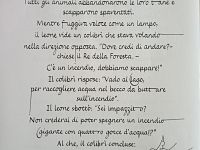 Tutti gli animali abbandonarono le loro tane e
scapparono spaventati.
Mentre fuggiva veloce come un lampo,
il leone vide un colibrì che stava volando
nella direzione opposta. "Dove credi di andare?"-
chiese il Re della Foresta. -
C'è un incendio, dobbiamo scappare!"
Il colibrì rispose: "Vado al lago,
per raccogliere acqua nel becco da buttare
sull'incendio".
Il leone sbottò: "Sei impazzito?
Non crederai di poter spegnere un incendio
gigante con quattro gocce d'acqua!?"
Al che, il colibrì concluse: